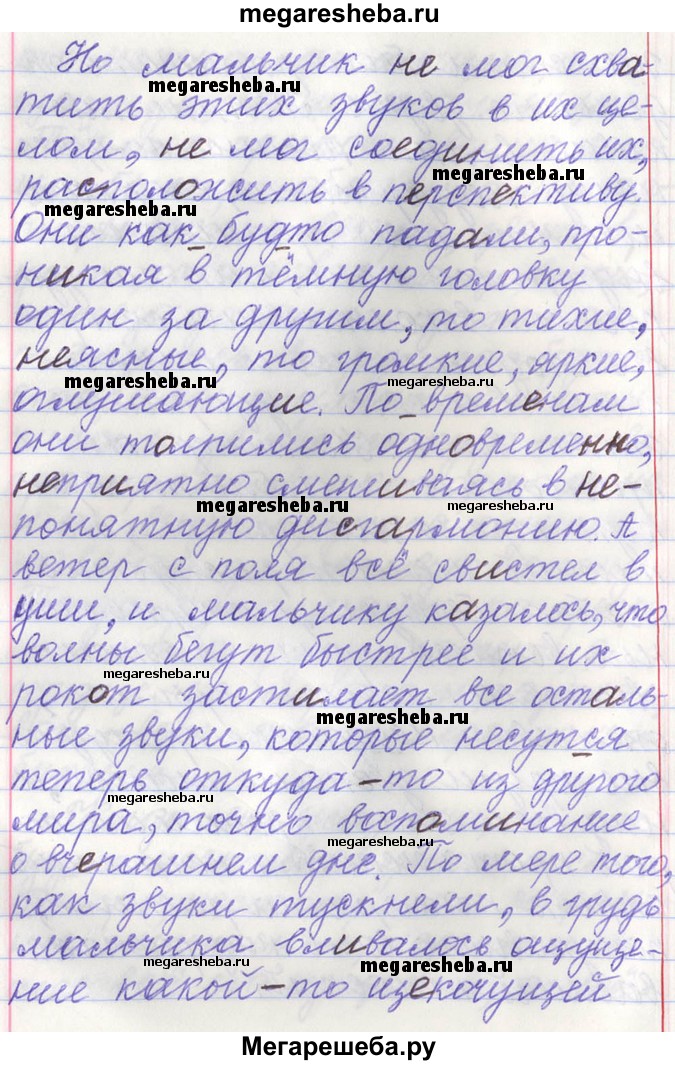 megaresheba.ru
Но мальчик не мог схва-
megaresheba.ru
тить этих звуков в их це-
лом, не мог соединить их,
megaresheba.ru
расположить в перспективу.
megaresheba.ru
Они как будто падали, про-
никая в тёмную головку
один за другим, то тихие,
неясные, то громкие, яркие,
megaresheba.ru
megaresheba.ru
оглушающие. По временам
они толпились одновременно,
неприятно смешиваясь в не-
megaresheba.ru
понятную дисгармонию. А
ветер с поля всё свистел в
уши, и мальчику казалось, что
волны бегут быстрее и их
megaresheba.ru
рокот застилает все осталь-
megaresheba.ru
ные звуки, которые несутся
теперь откуда-то из другого
megaresheba.ru
мира, точно воспоминание
megaresheba.ru
о вчерашнем дне. По мере того,
как звуки тускнели, в грудь
мальчика вливалось ощуще-
megaresheba.ru
megaresheba.ru
ние какой-то щекочущей
Мегарешеба.ру